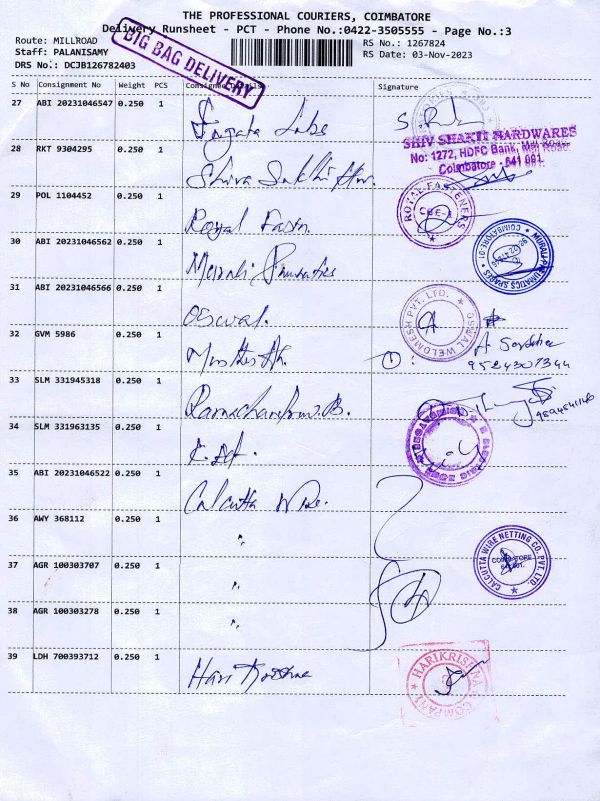 THE PROFESSIONAL COURIERS, COIMBATORE
Delivery Runsheet - PCT - Phone No.:0422-3505555 - Page No.:3
Route: MILLROAD
Staff: PALANISAMY
DRS No.: DCJB126782403
BIG BAG DELIVERY
RS No.: 1267824
RS Date: 03-Nov-2023
S No Consignment No Weight PCS Consignee Details Signature
27 ABI 20231046547 0.250 1
28 RKT 9304295 0.250 1
SHIV SHAKTI HARDWARES
No: 1272, HDFC Bank, Mill Road,
Coimbatore - 641 001.
29 POL 1104452 0.250 1 Royal Fastn.
ROYAL FASTENERS
CBE-1
30 ABI 20231046562 0.250 1
COIMBATORE-01
31 ABI 20231046566 0.250 1 Oswal.
OSWAL WELDMESH PVT. LTD.
32 GVM 5986 0.250 1
9524307344
33 SLM 331945318 0.250 1 Ramachandran. B.
34 SLM 331963135 0.250 1
35 ABI 20231046522 0.250 1 Calcutta Wire.
36 AWY 368112 0.250 1 "
CALCUTTA WIRE NETTING CO. PVT. LTD.
COIMBATORE
641 001.
37 AGR 100303707 0.250 1 "
38 AGR 100303278 0.250 1 "
39 LDH 700393712 0.250 1 Hari Krishna
HARIKRISHNA & COMPANY